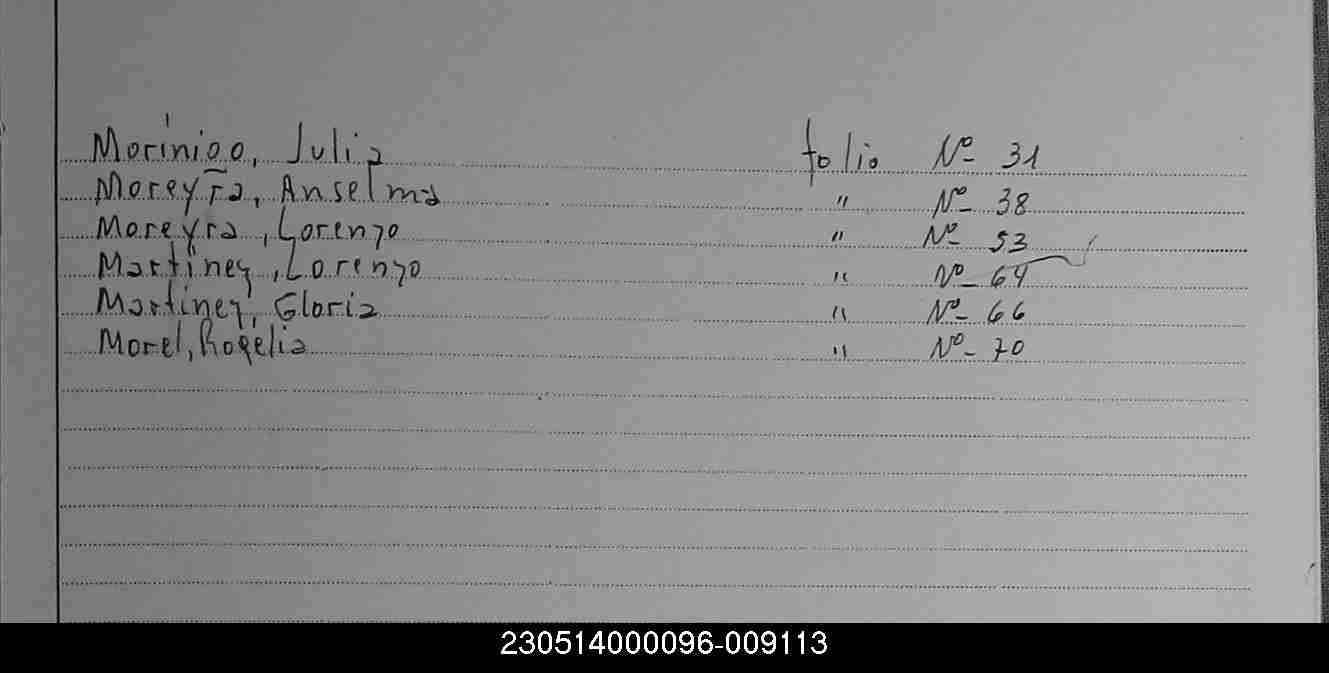 Morínigo, Julia folio Nº 31
Moreyra, Anselma " Nº 38
Moreyra, Lorenzo " Nº 53
Martínez, Lorenzo " Nº 64
Martínez, Gloria " Nº 66
Morel, Rogelia " Nº 70
230514000096-009113